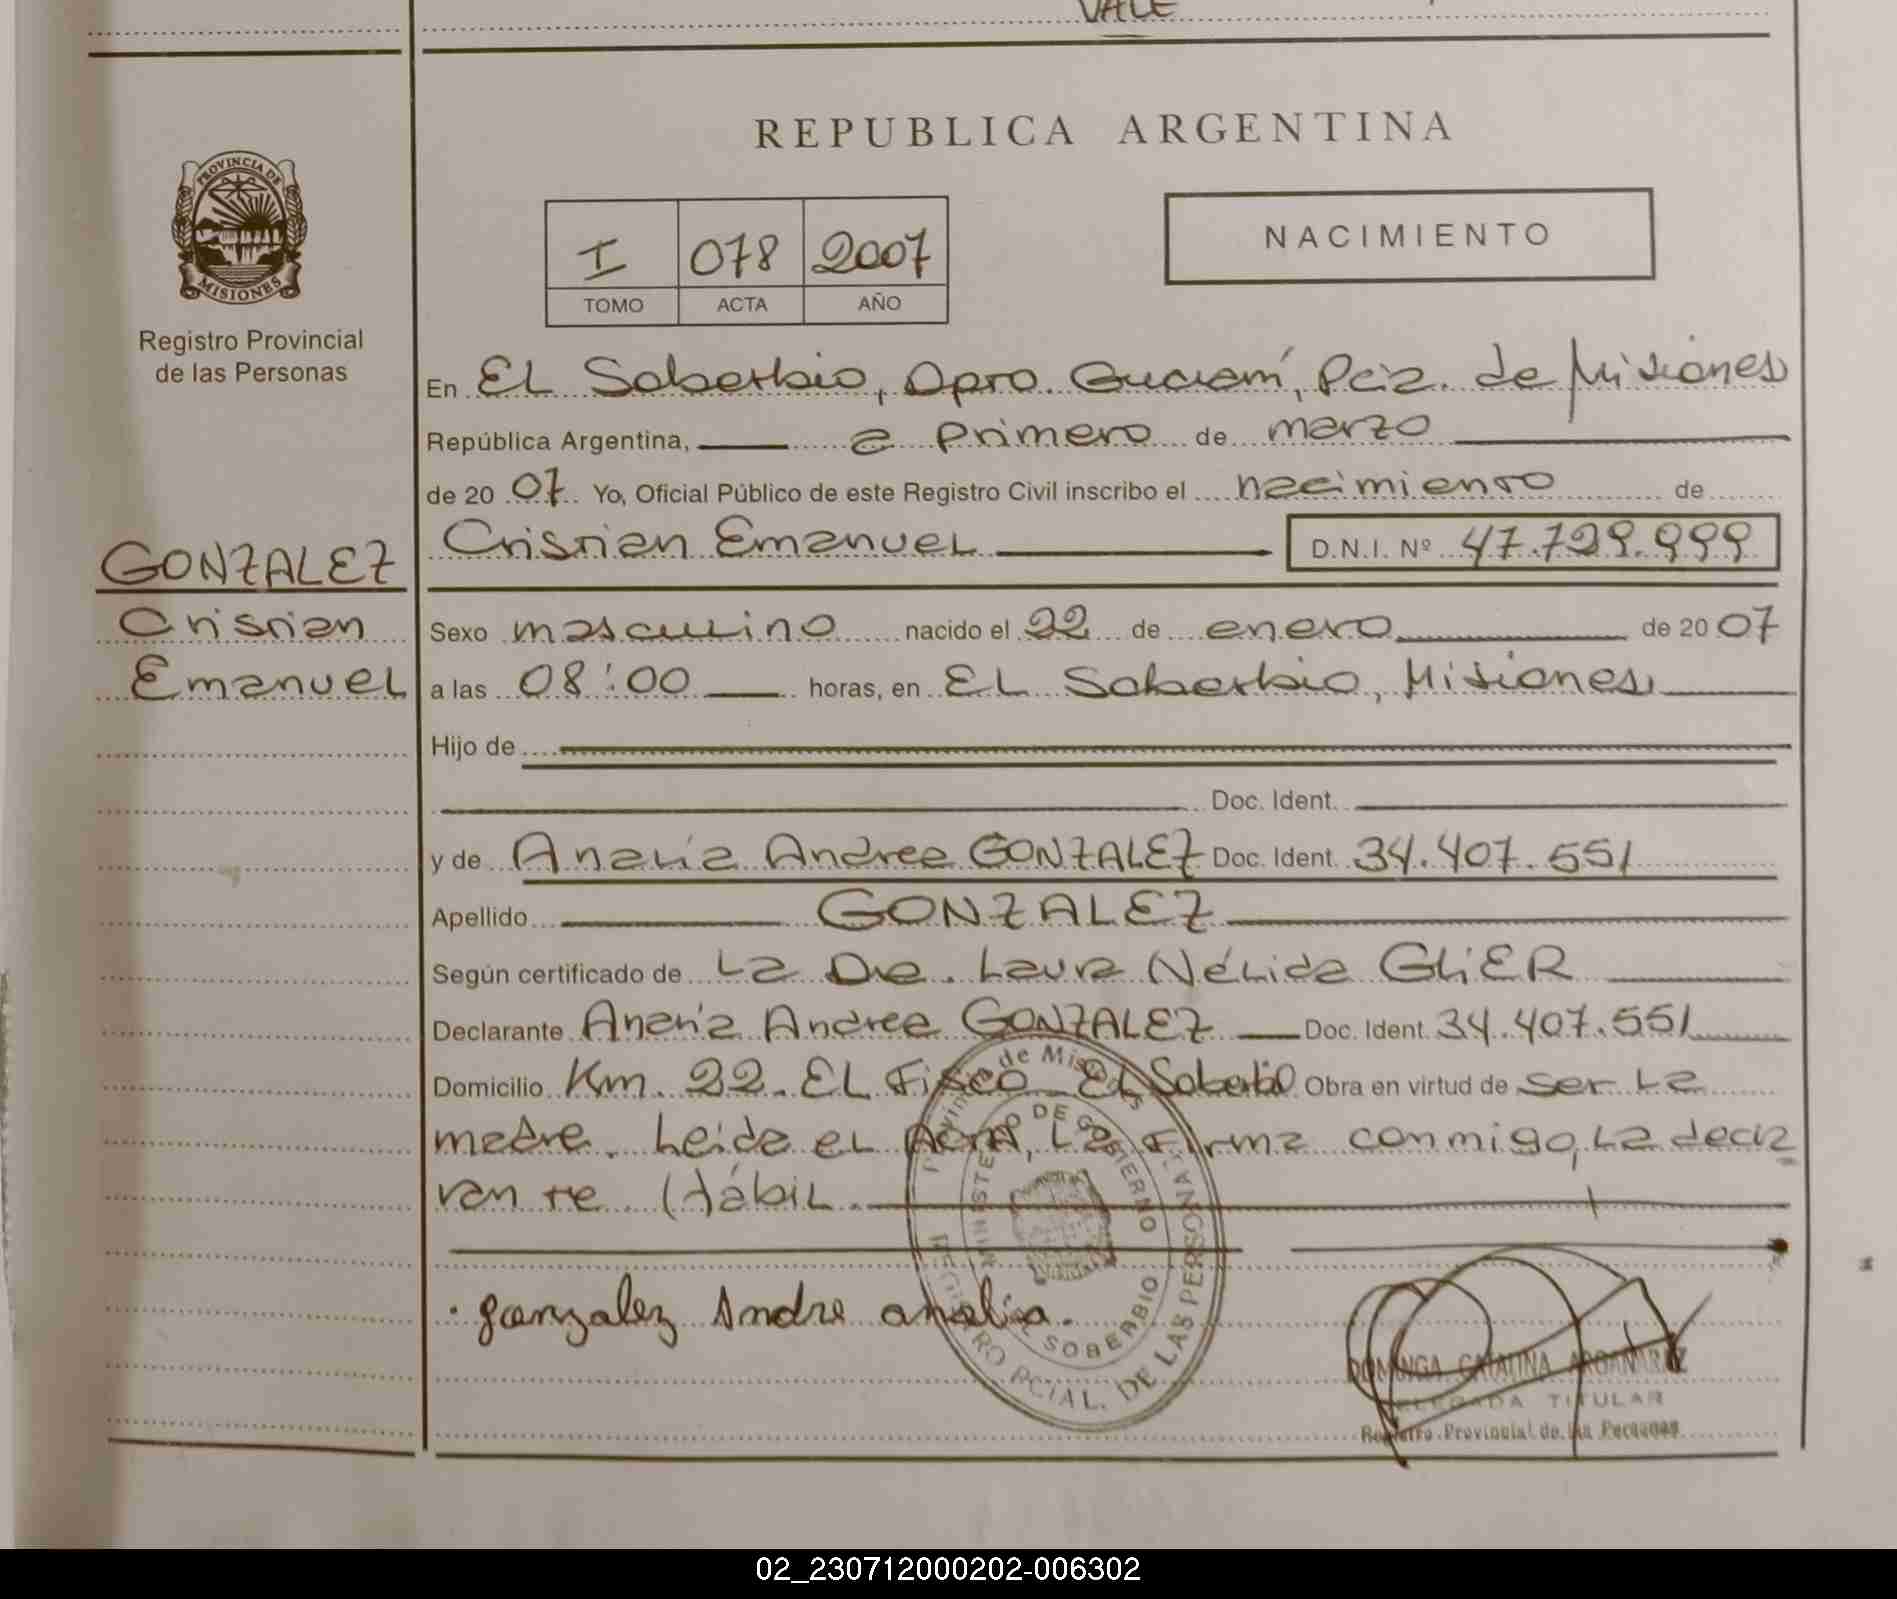 VALE
REPUBLICA ARGENTINA
PROVINCIA DE
MISIONES
Registro Provincial
de las Personas
I 078 2007
TOMO ACTA AÑO
NACIMIENTO
En EL Soberbio, Dpto. Guaraní, Pcia. de Misiones
República Argentina, a primero de marzo
de 2007 Yo, Oficial Público de este Registro Civil inscribo el nacimiento de
Cristian Emanuel D.N.I. Nº 47.729.999
GONZALEZ
Cristian
Emanuel
Sexo masculino nacido el 22 de enero de 2007
a las 08:00 horas, en EL Soberbio, Misiones
Hijo de
Doc. Ident.
y de Analía Andrea GONZALEZ Doc. Ident. 34.407.551
Apellido GONZALEZ
Según certificado de La Dra. Laura Nélida GLIER
Declarante Analía Andrea GONZALEZ Doc. Ident. 34.407.551
Domicilio Km. 22. EL Fisco EL Soberbio Obra en virtud de ser La
madre. Leída el Acta, La Firma conmigo, La decla
rante. Hábil.
gonzalez Andre analia.
Provincia de Misiones
MINISTERIO DE GOBIERNO
EL SOBERBIO
REGISTRO PCIAL. DE LAS PERSONAS
DOMINGA CATALINA ARGAÑARAZ
DELEGADA TITULAR
Registro Provincial de las Personas
02_230712000202-006302